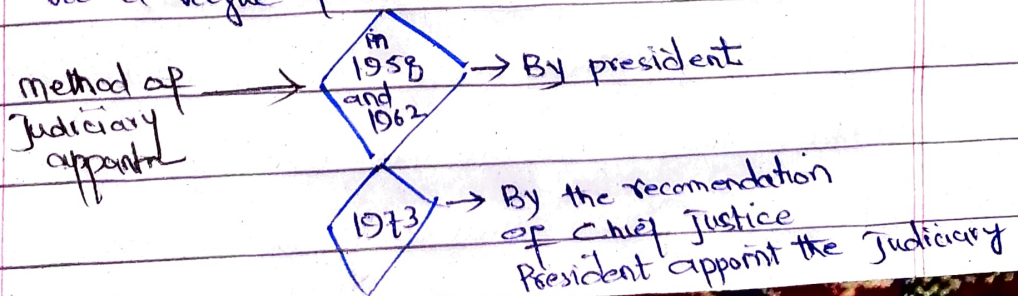 method of
Judiciary
in
1958
and
1962
→ By president
1973
→ By the recomendation
of Chief Justice
President appoint the Judiciary